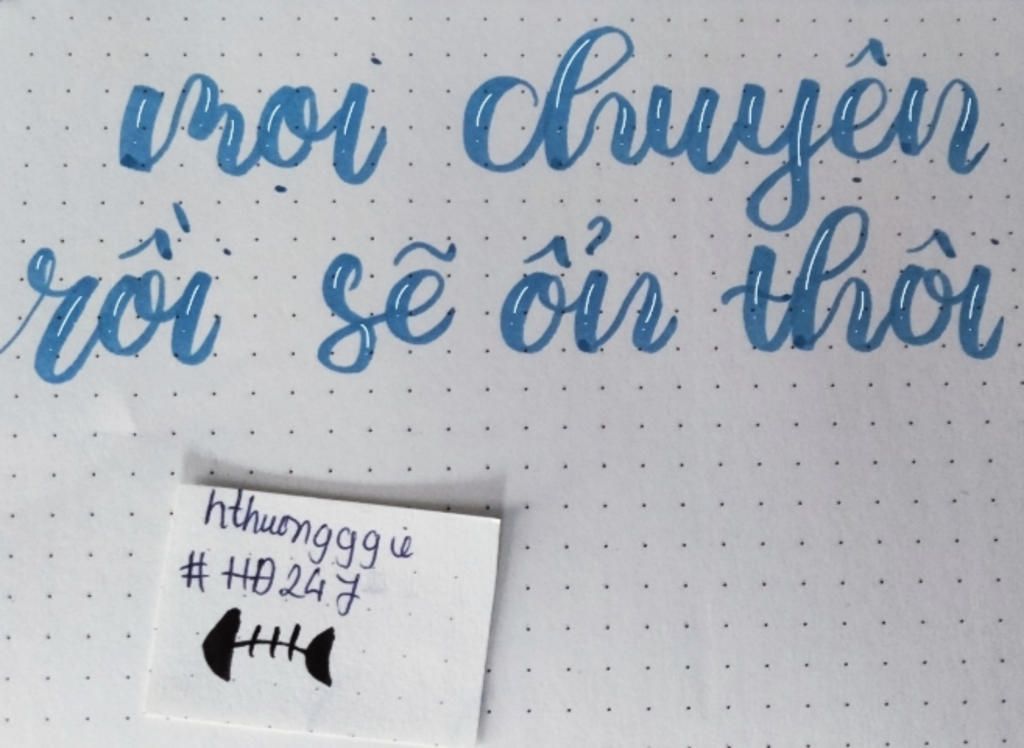 mọi chuyện
rồi sẽ ổn thôi
hthuongggie
#HĐ247